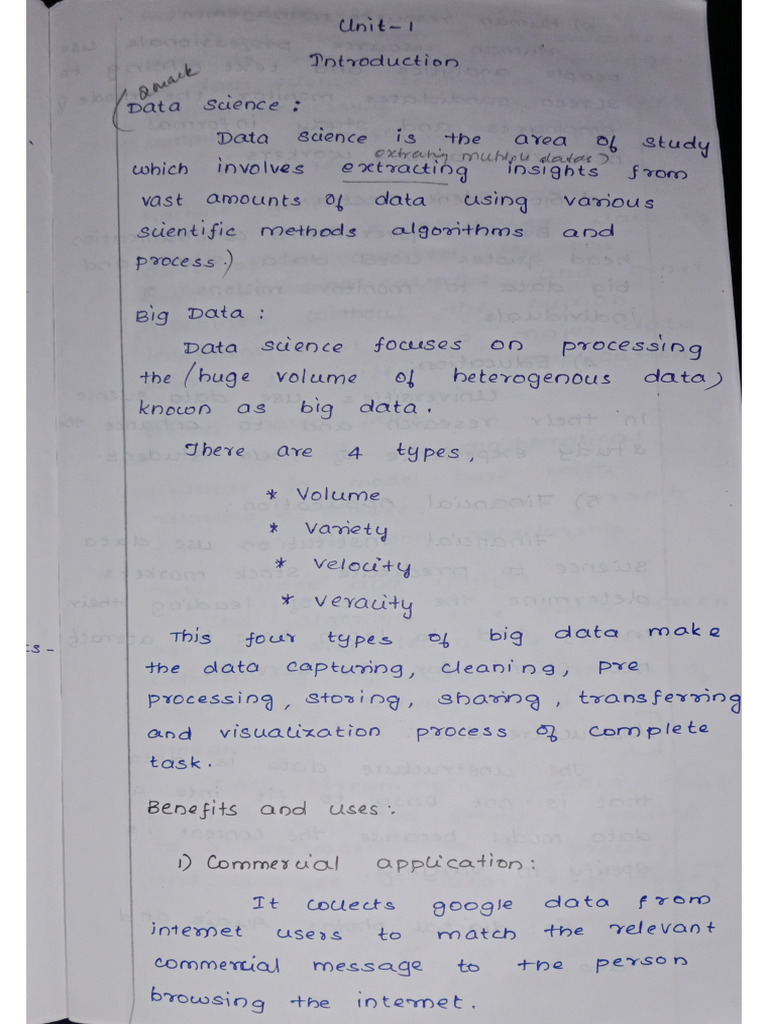 Unit-1
Introduction
2 mark
(Data Science:
Data science is the area of study
which involves extracting insights from
vast amounts of data using various
scientific methods algorithms and
process.)
Big Data:
Data science focuses on processing
the (huge volume of heterogenous data)
known as big data.
There are 4 types,
* Volume
* Variety
* Velocity
* Veracity
This four types of big data make
the data capturing, cleaning, pre
processing, storing, sharing, transferring
and visualization process of complete
task.
Benefits and uses:
1) Commercial application:
It collects google data from
internet users to match the relevant
commercial message to the person
browsing the internet.